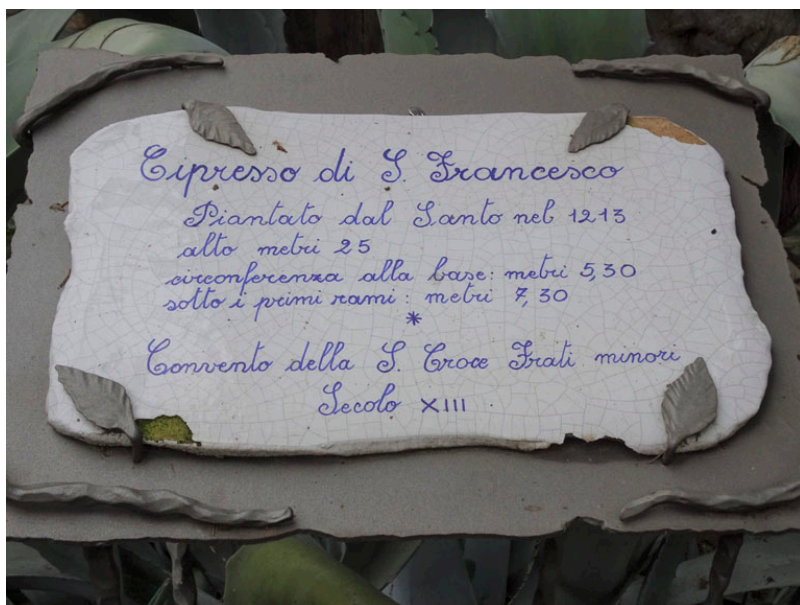 Cipresso di S. Francesco
Piantato dal Santo nel 1213
alto metri 25
circonferenza alla base: metri 5,30
sotto i primi rami: metri 7,30
*
Convento della S. Croce Frati minori
Secolo XIII